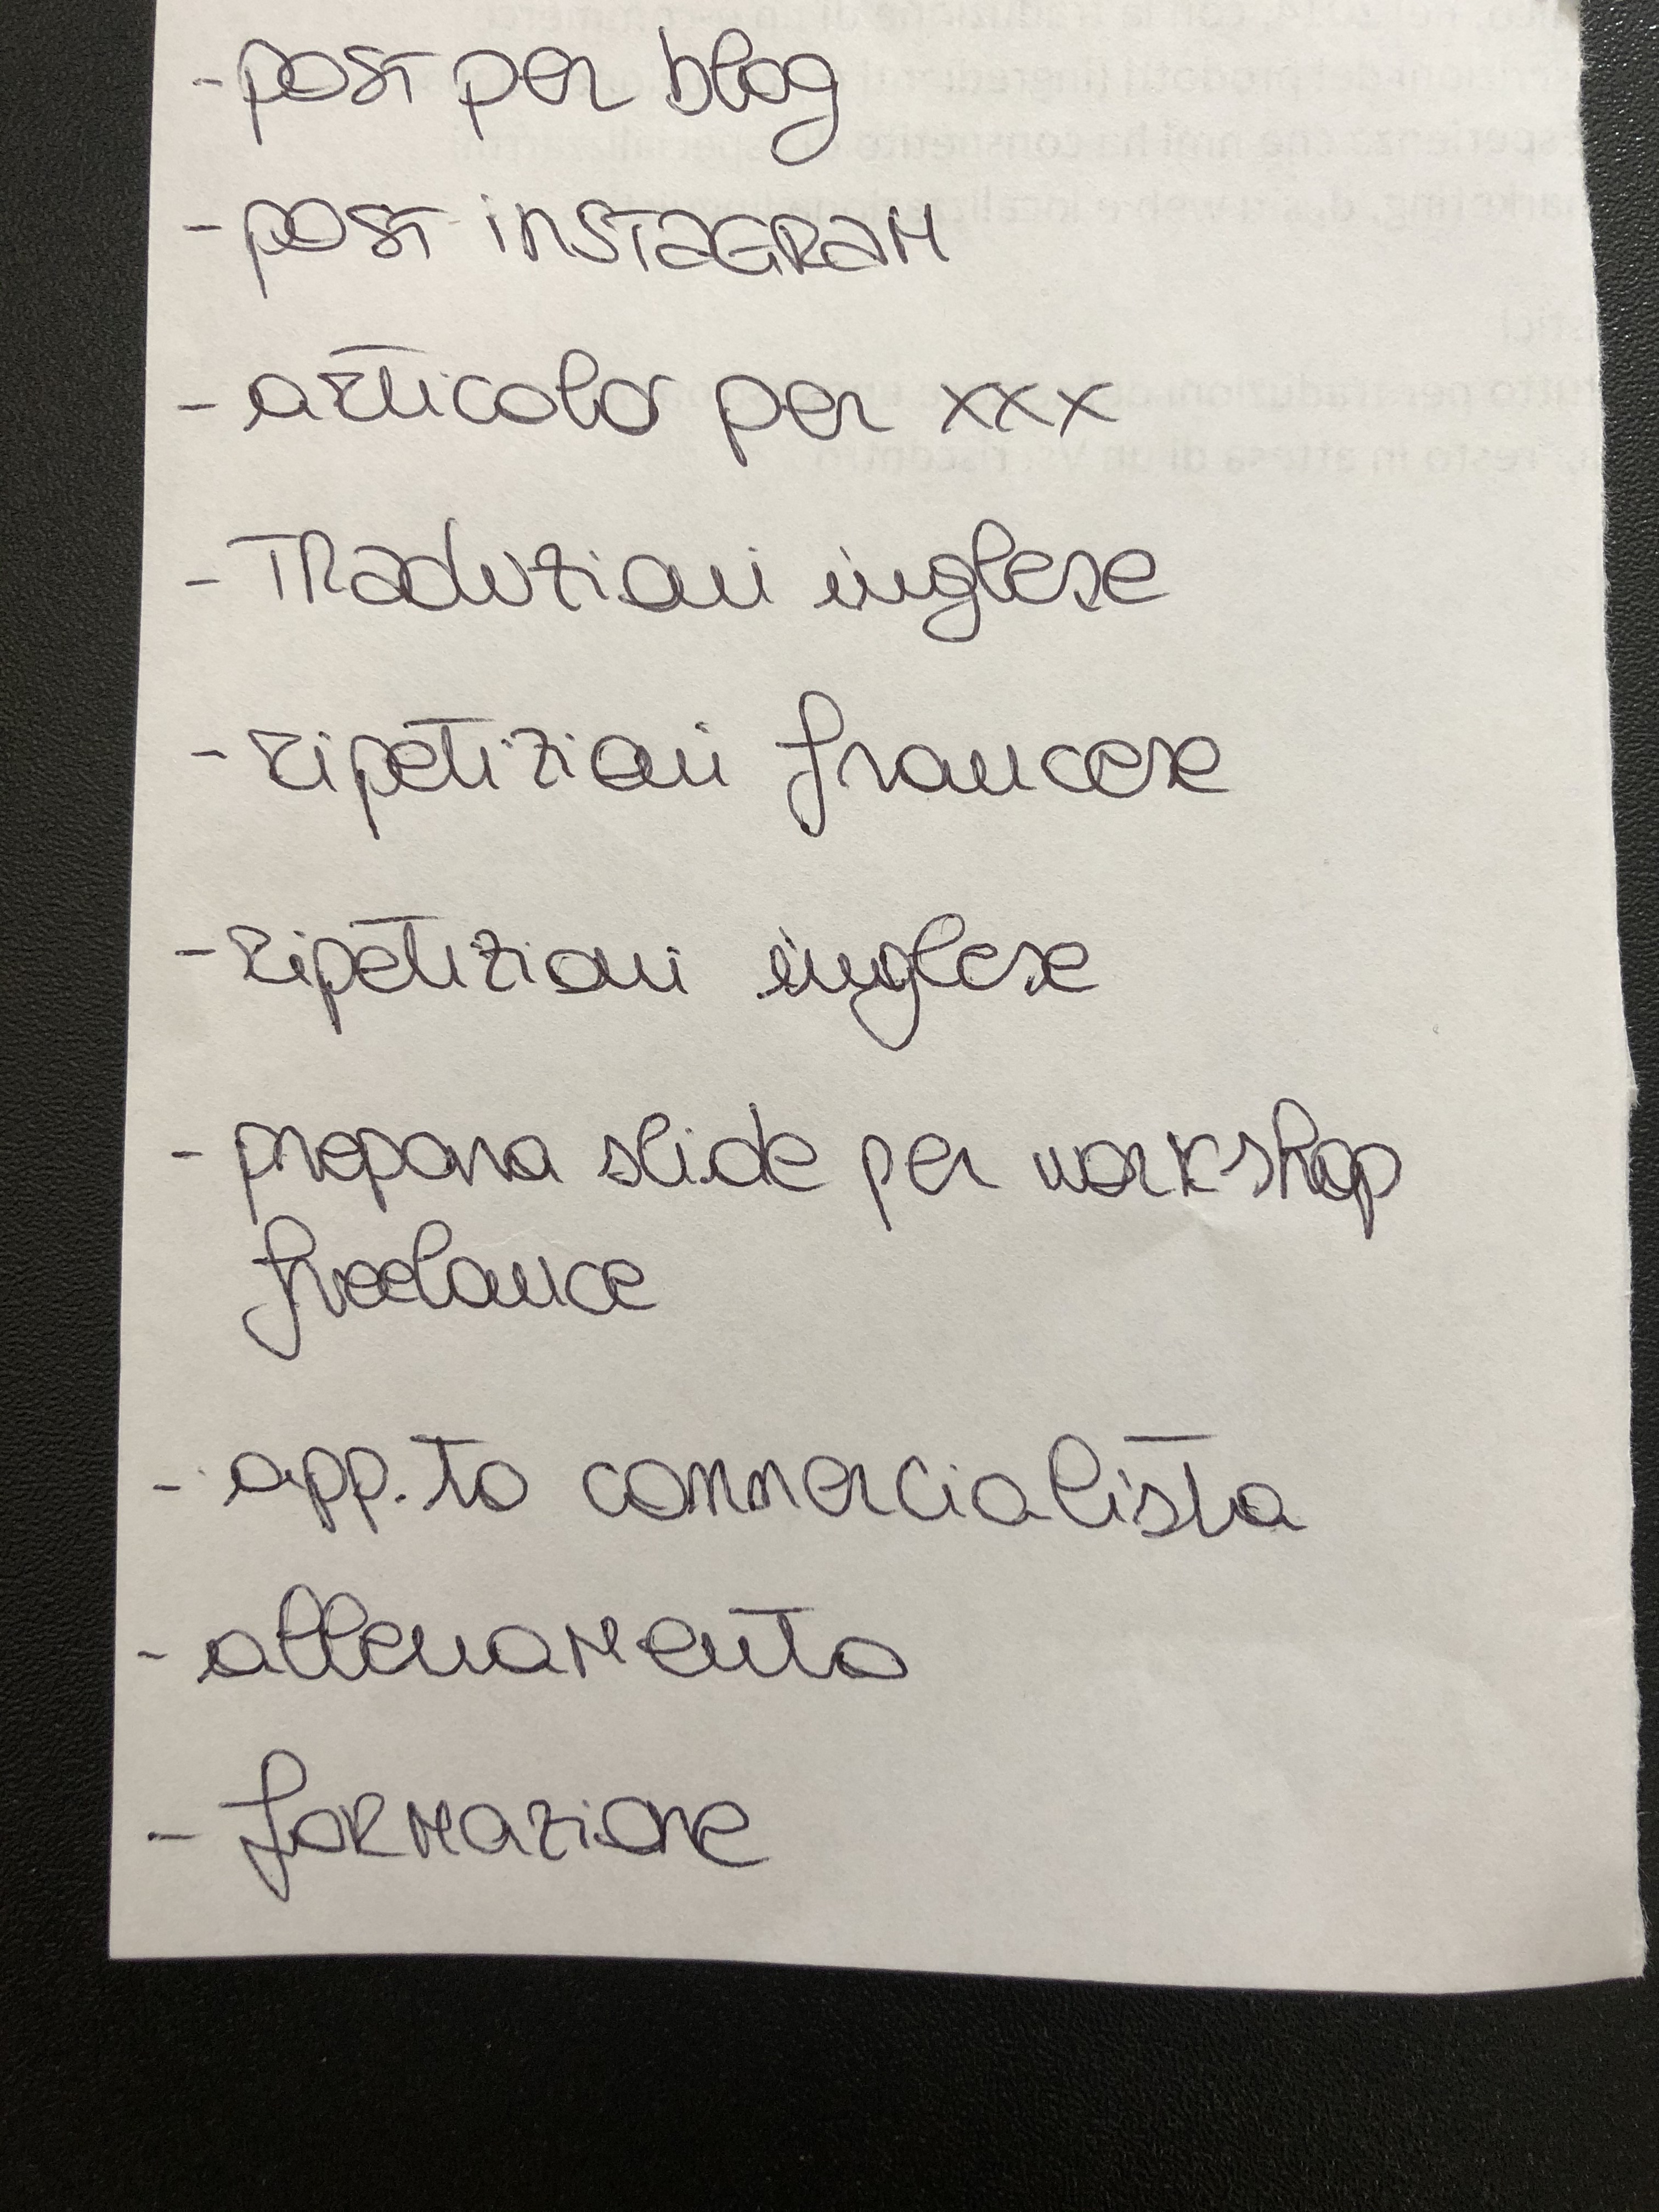 - post per blog
- post instagram
- articolo per xxx
- Traduzioni inglese
- ripetizioni francese
- ripetizioni inglese
- prepara slide per workshop
freelance
- app.to commercialista
- allenamento
- formazione